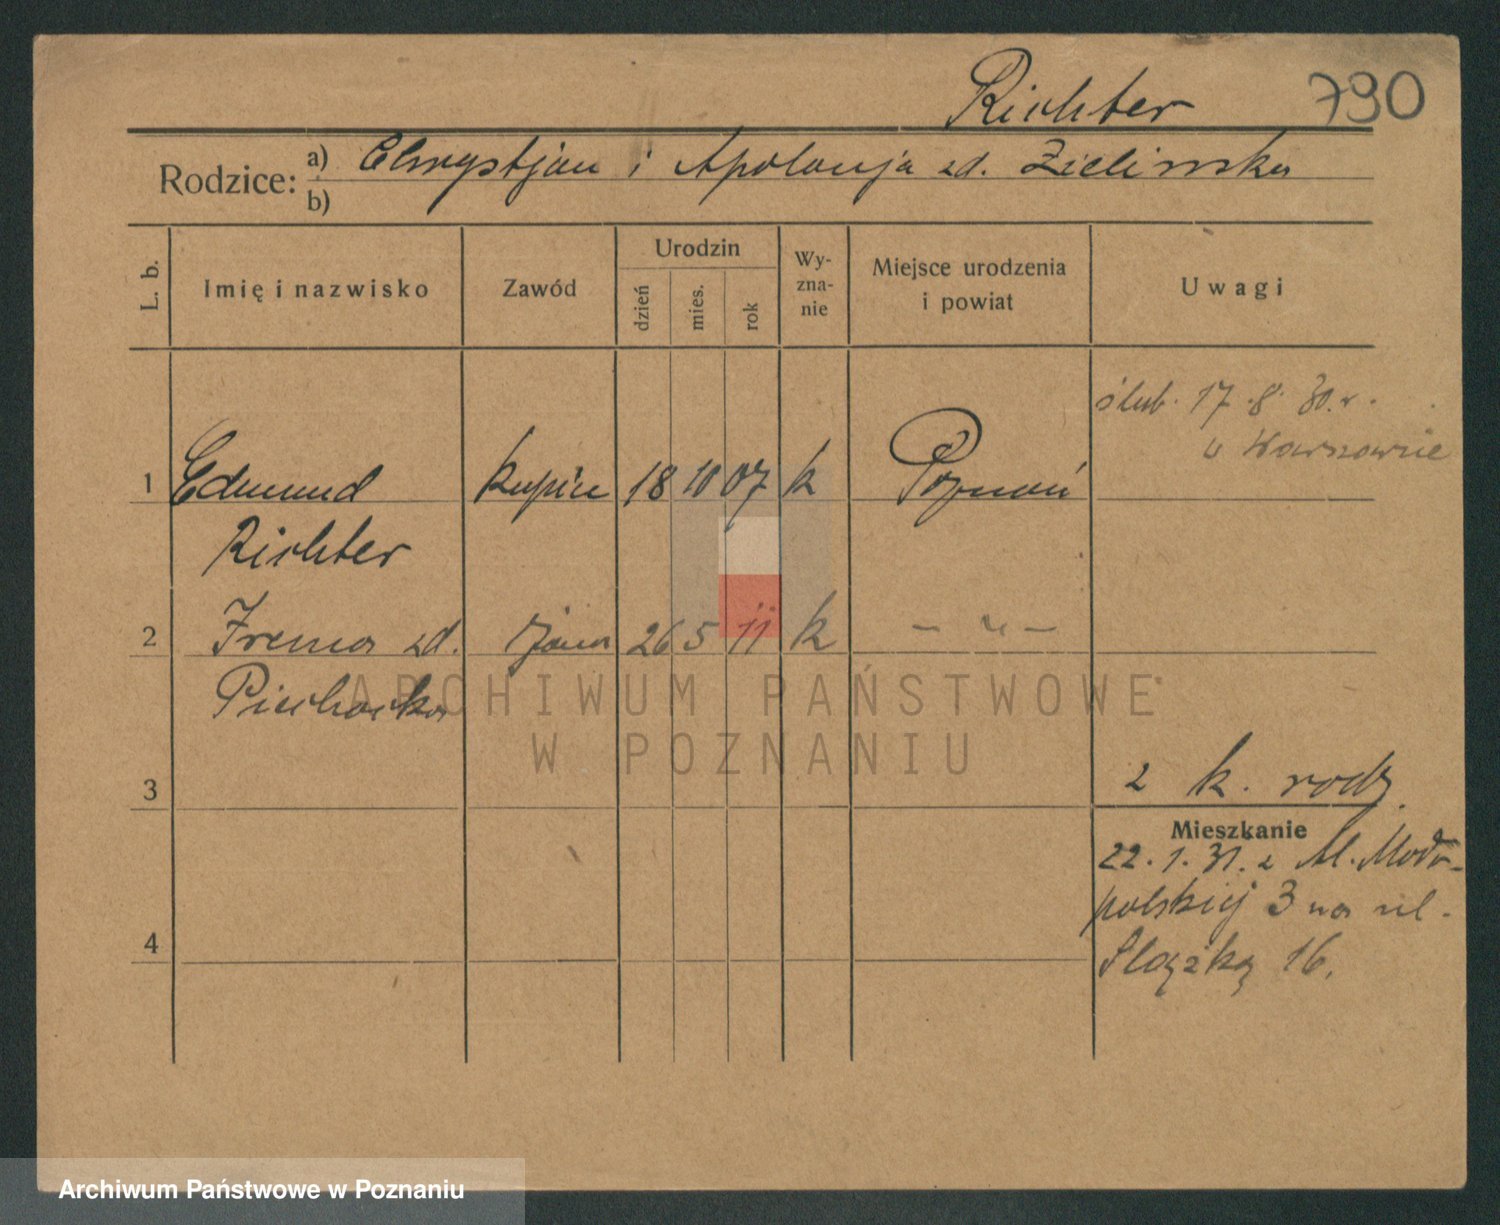 Richter 790
Rodzice: a) Chrystjan i Apolonja zd. Zielinska
b)
L. b. Imię i nazwisko Zawód Urodzin dzień mies. rok Wy-zna-nie Miejsce urodzenia i powiat Uwagi
ślub. 17.8.30.r.
w Warszawie
1 Edmund kupiec 18 10 07 k Poznań
Richter
2 Irena zd. żona 26 5 11 k – " –
Piechocka
ARCHIWUM PAŃSTWOWE
W POZNANIU
z k. rodz.
3
Mieszkanie
22.1.31. z Al. Mało-
polskiej 3 na ul.
Śląską 16.
4
Archiwum Państwowe w Poznaniu